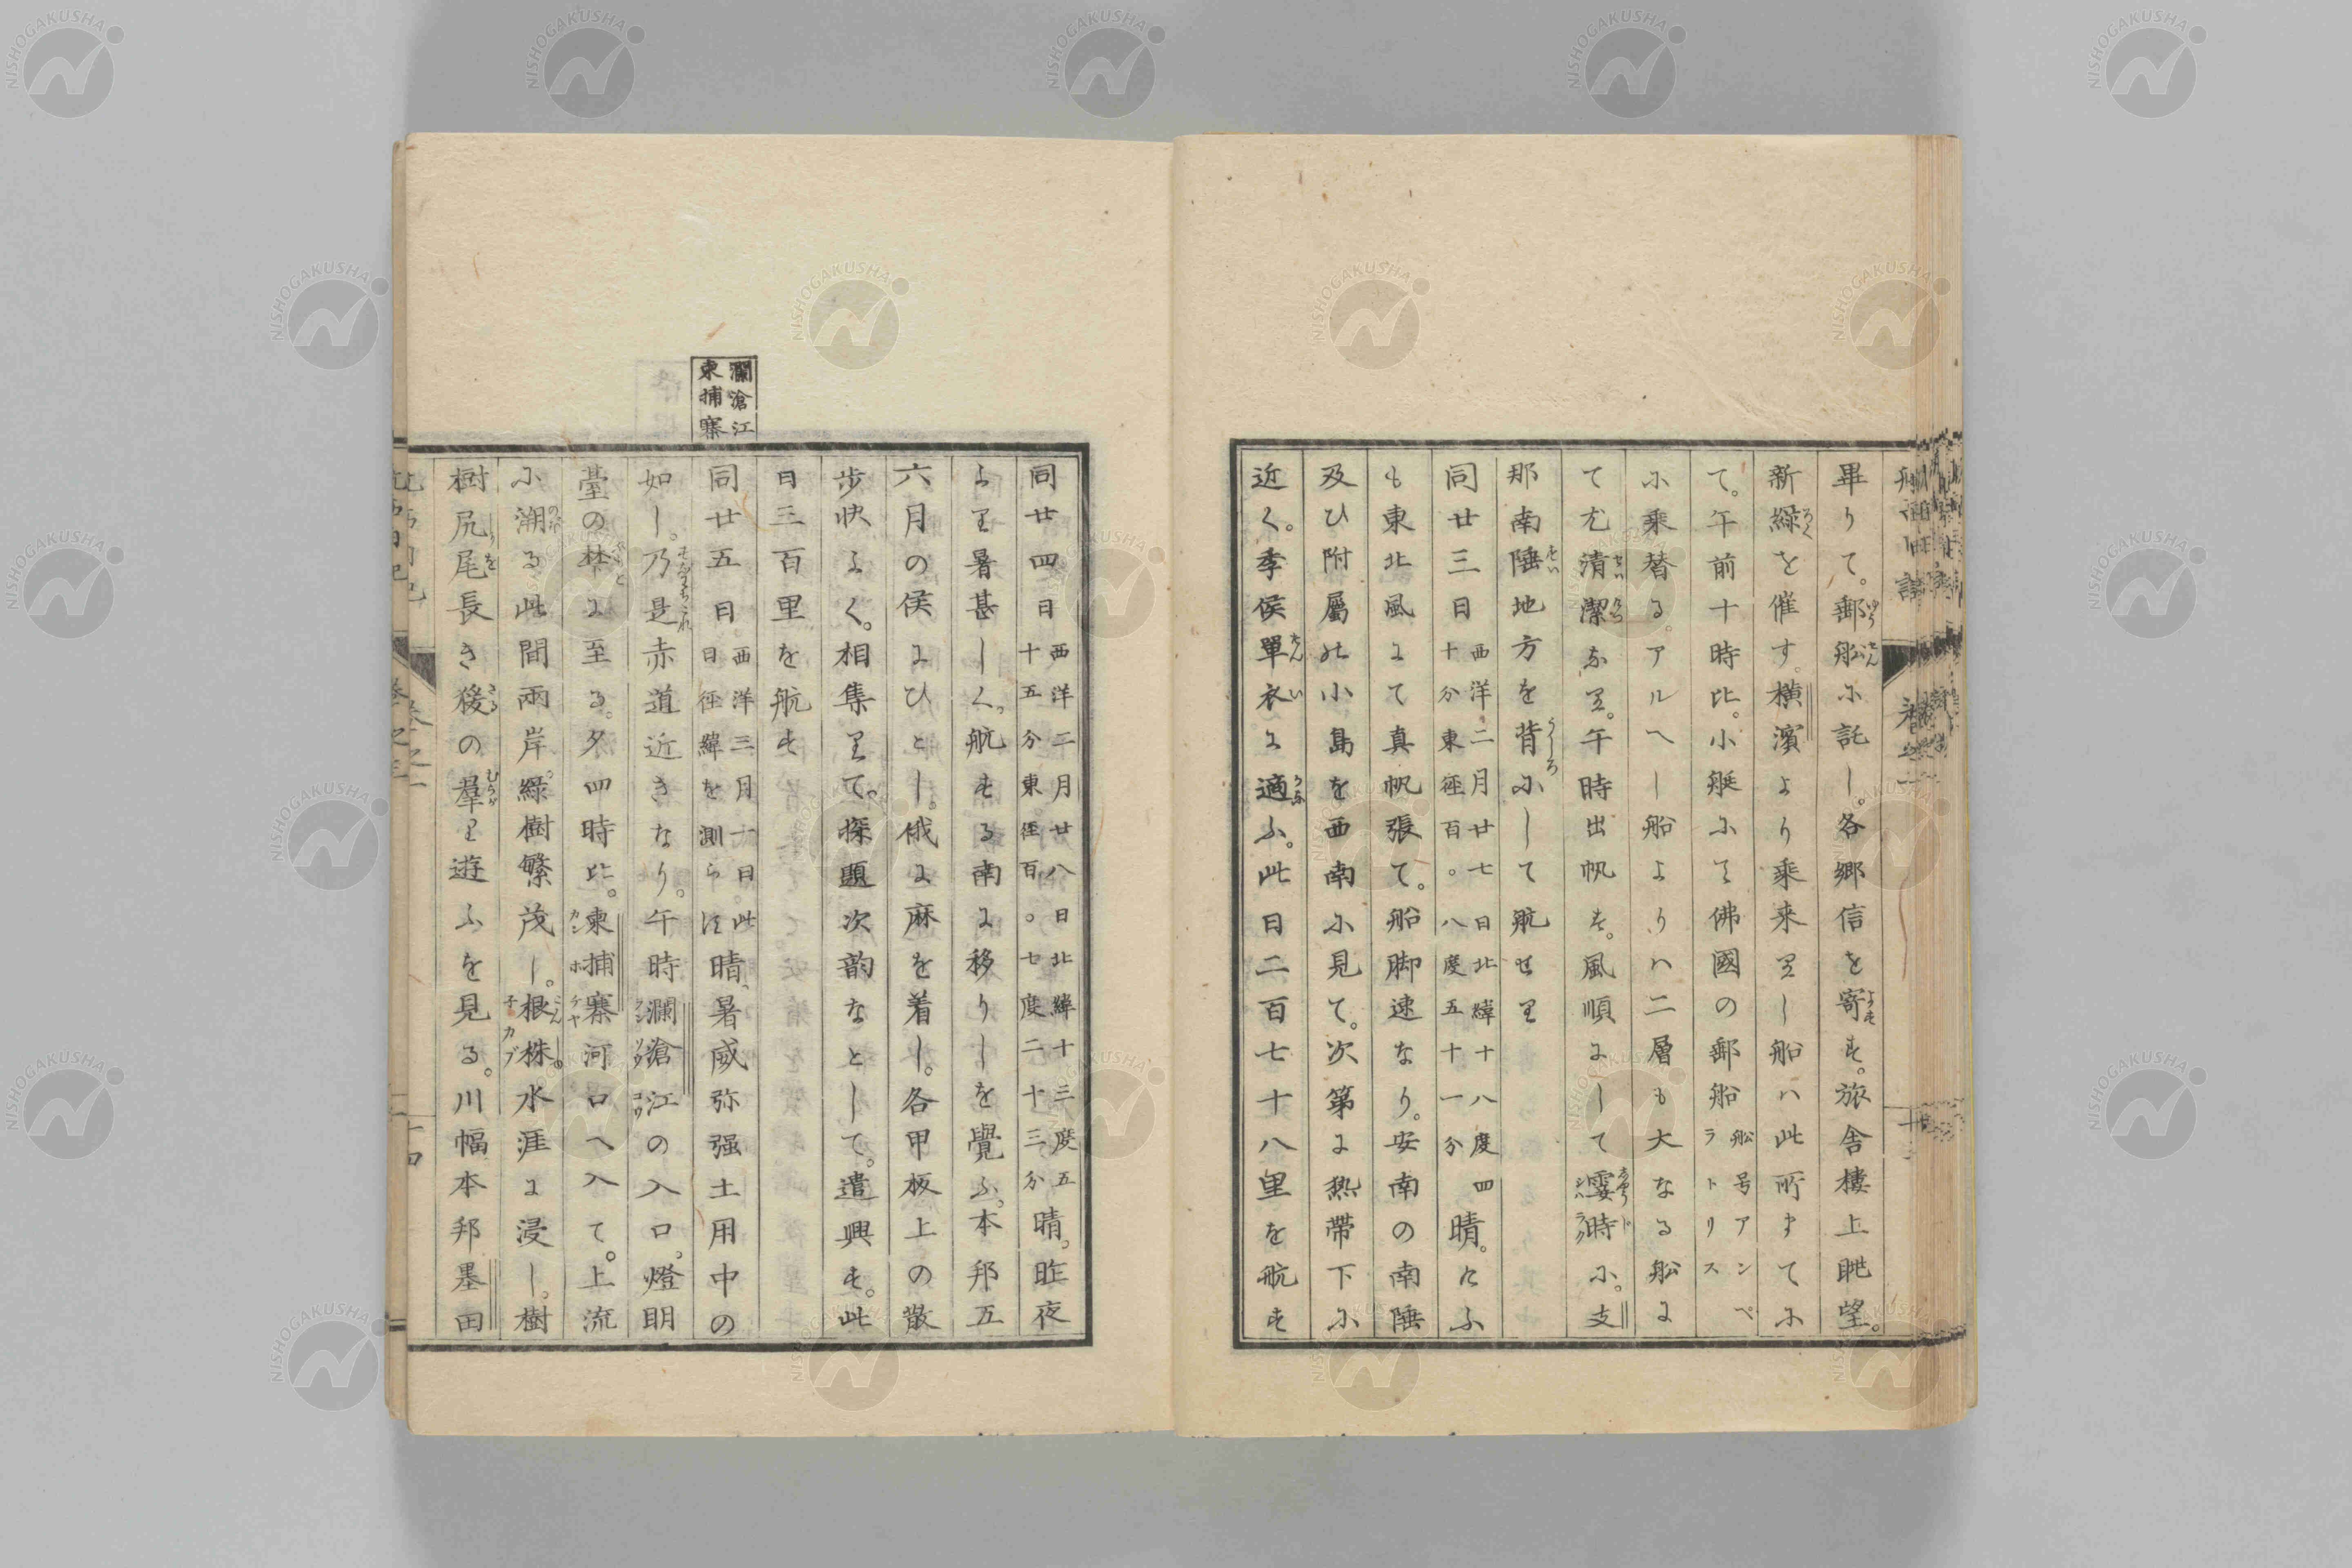 畢りて。郵船ふ託し。各郷信を寄す。旅舎樓上眺望。
新緑を催す。横濱より乘来りし船ハ此所までふ
て。午前十時比。小艇ふて佛國の郵船 船号アンペラトリス
ふ乘替る。アルヘー船よりハ二層も大なる船に
て尤清潔なり。午時出帆す。風順にして霎時ふ。支
那南陲地方を背ふして航せり
同廿三日 西洋二月廿七日北緯十八度四十分東徑百〇八度五十一分 晴。けふ
も東北風にて真帆張て。船脚速なり。安南の南陲
及ひ附屬の小島を西南ふ見て。次第に熱帶下ふ
近く。季候單衣に適ふ。此日二百七十八里を航す
瀾滄江
東捕寨
同廿四日 西洋二月廿八日北緯十三度五十五分東徑百〇七度二十三分 晴。昨夜
より暑甚しく。航する南に移りしを覺ふ。本邦五
六月の候にひとし。俄に麻を着し。各甲板上の散
歩快よく。相集りて。探題次韵なとして。遣興す。此
日三百里を航す
同廿五日 西洋三月一日此日徑緯を測らす 晴。暑威弥强土用中の
如し。乃是赤道近きなり。午時瀾滄江の入口。燈明
臺の麓に至る。夕四時比。東捕寨河口へ入て。上流
ふ溯る此間兩岸緑樹繁茂し。根株水涯に浸し。樹
樹尻尾長き猨の羣り遊ふを見る。川幅本邦墨田